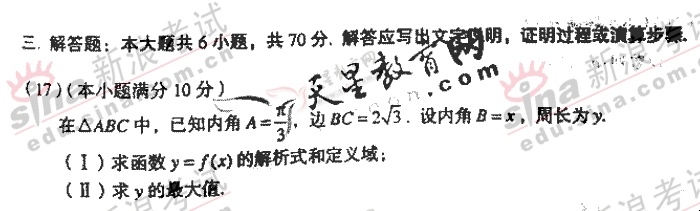 三. 解答题: 本大题共6小题, 共70分. 解答应写出文字说明, 证明过程或演算步骤.
(17) (本小题满分10分)
在△ABC中, 已知内角A=π/3, 边BC=2√3. 设内角B=x, 周长为y.
(Ⅰ) 求函数y=f(x)的解析式和定义域;
(Ⅱ) 求y的最大值.
天星教育网
.com
sina 新浪考试
edu.sina.com.cn